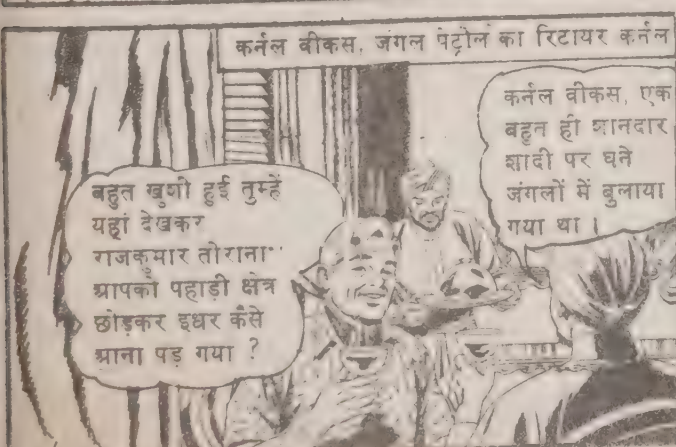 कर्नल वीकस, जंगल पेट्रोल का रिटायर कर्नल
बहुत खुशी हुई तुम्हें
यहां देखकर
राजकुमार तोराना··
आपको पहाड़ी क्षेत्र
छोड़कर इधर कैसे
आना पड़ गया ?
कर्नल वीकस, एक
बहुत ही शानदार
शादी पर घने
जंगलों में बुलाया
गया था ।